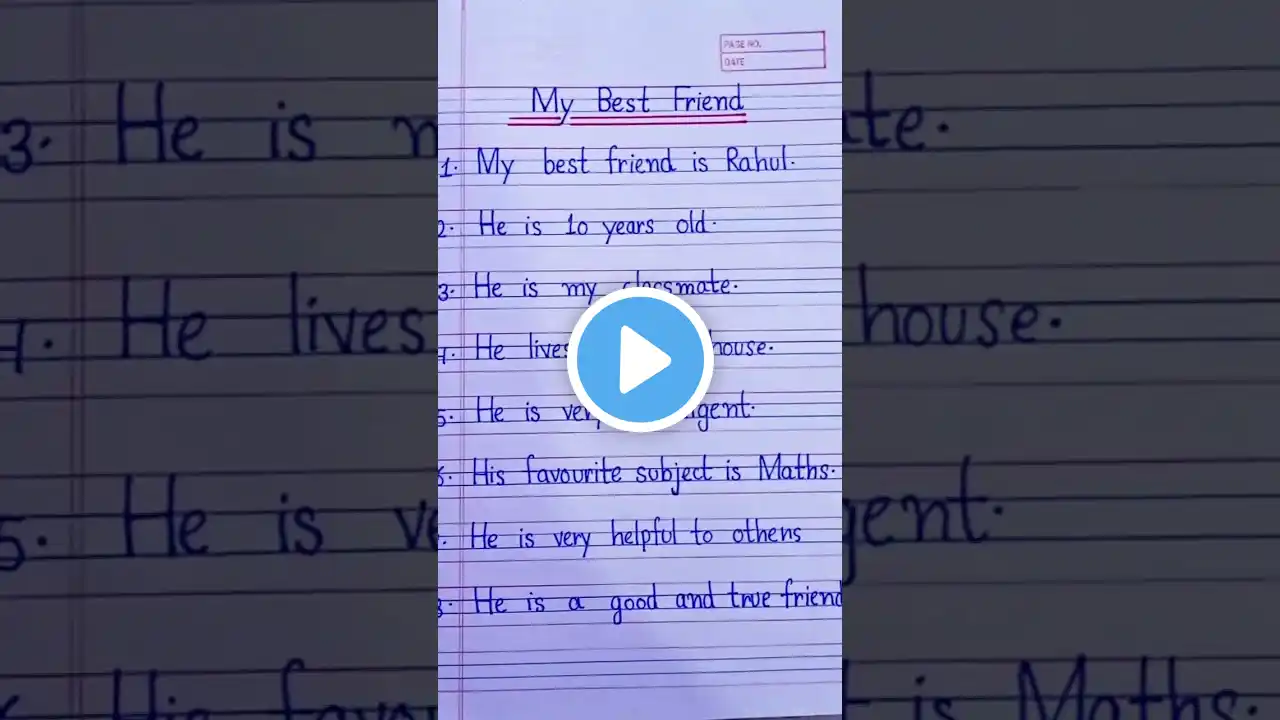 PAGE NO.
DATE
My Best Friend
1. My best friend is Rahul.
2. He is 10 years old.
3. He is my classmate.
4. He lives house.
5. He is very
6. His favourite subject is Maths.
He is very helpful to others
8. He is a good and true friend